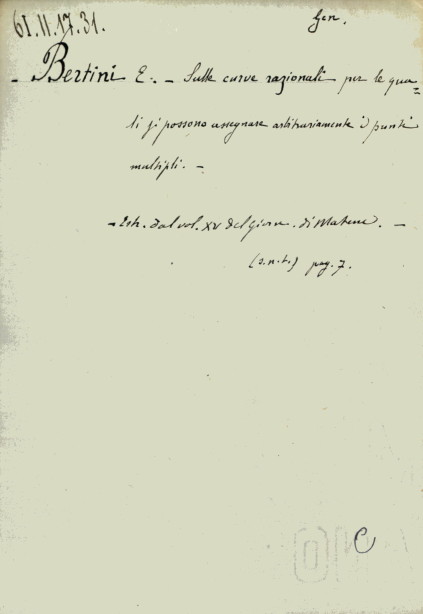 61.II.17.31.
Gen.
- Bertini E. - Sulle curve razionali per le qua=
li si possono assegnare arbitrariamente i punti
multipli. -
- Estr. dal vol. XV del Giorn. di Matem. -
(s.n.t.) pag. 7.
C